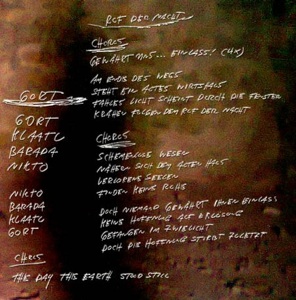 RUF DER NACHT
CHORUS
GEWÄHRT UNS... EINLASS! (4x)
AM ENDE DES WEGS
STEHT EIN ALTES WIRTSHAUS
FAHLES LICHT SCHEINT DURCH DIE FENSTER
KRÄHEN FOLGEN DEM RUF DER NACHT
CHORUS
SCHEMENLOSE WESEN
NÄHERN SICH DEM ALTEN HAUS
VERLORENE SEELEN
FINDEN KEINE RUHE
DOCH NIEMALS GEWÄHRT IHNEN EINLASS
KEINE HOFFNUNG AUF ERLÖSUNG
GEFANGEN IM ZWIELICHT
DOCH DIE HOFFNUNG STIRBT ZULETZT
GORT
GORT
KLAATU
BARADA
NIKTO
NIKTO
BARADA
KLAATU
GORT
CHORUS
THE DAY THIS EARTH STOOD STILL